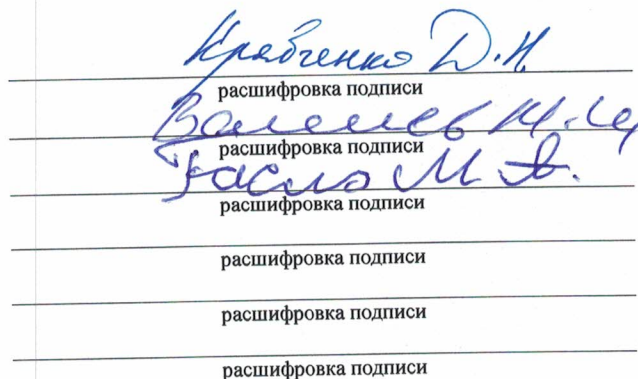 Кравченко Д.Н.
расшифровка подписи
расшифровка подписи
М.А.
расшифровка подписи
расшифровка подписи
расшифровка подписи
расшифровка подписи